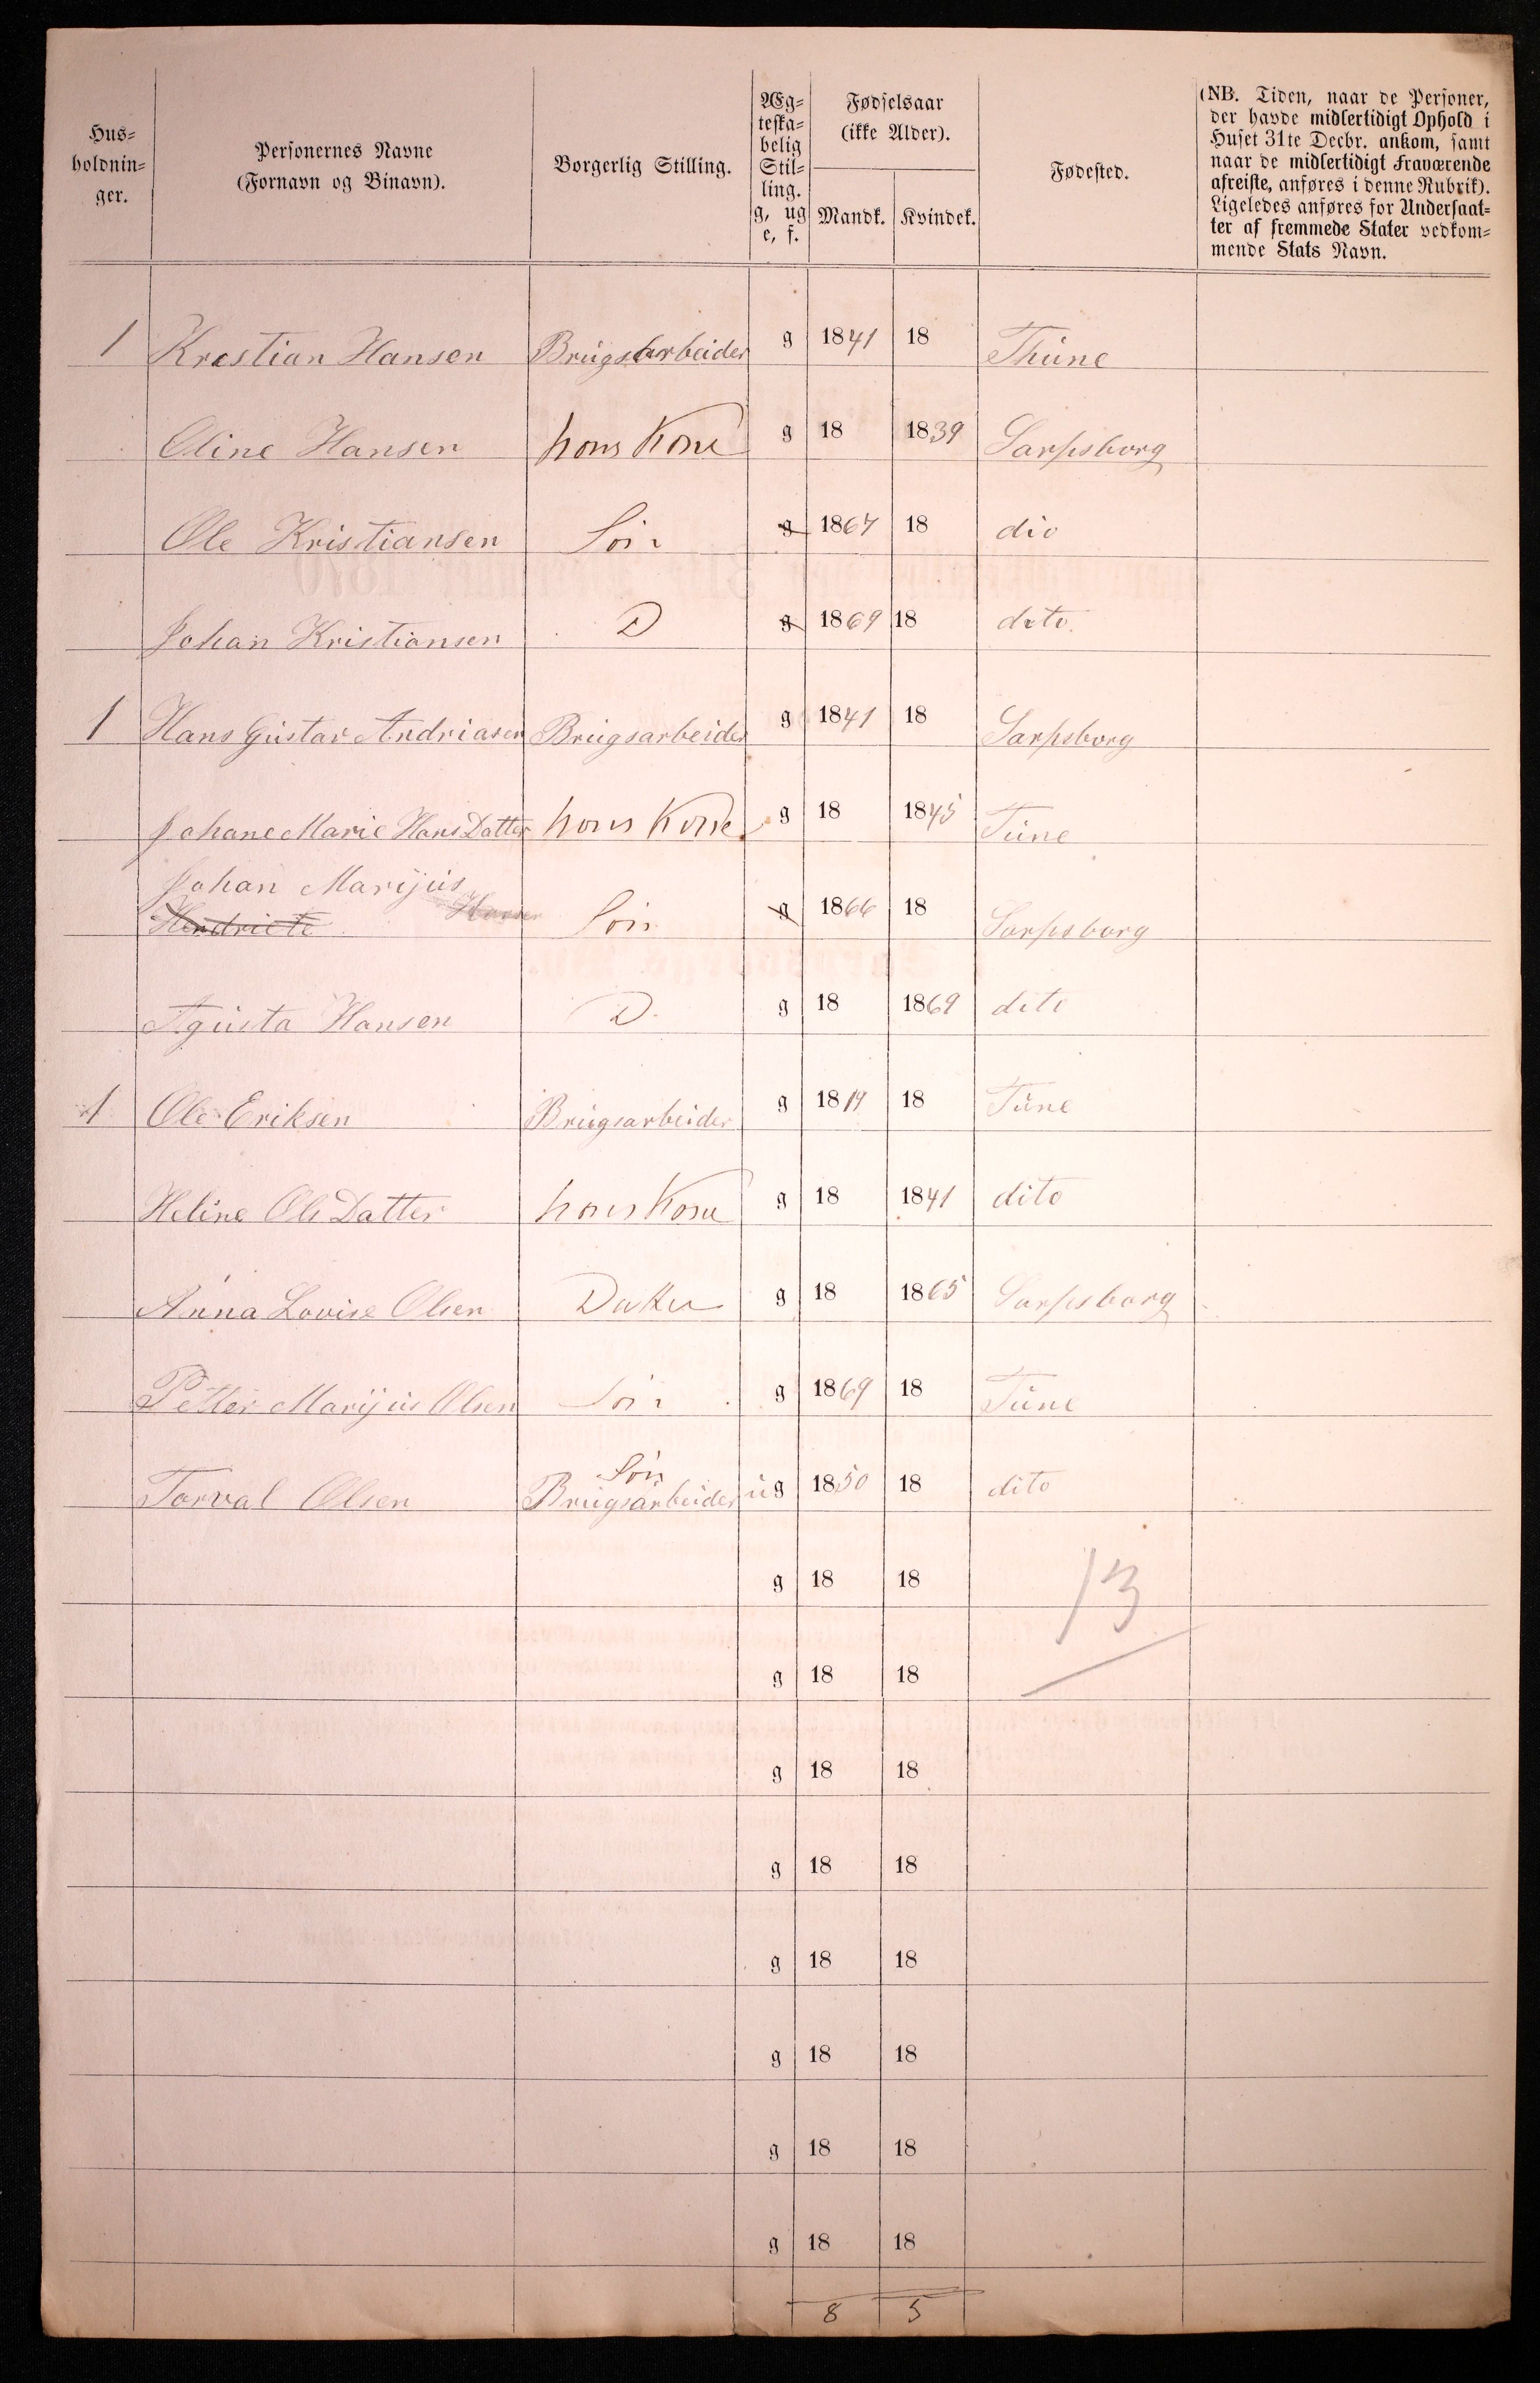 Hus=
holdnin=
ger.
Personernes Navne
(Fornavn og Binavn).
Borgerlig Stilling.
Æg=
teska=
belig
Stil=
ling.
g, ug
e, f.
Fødselsaar
(ikke Alder).
Mandk. Kvindek.
Fødested.
(NB. Tiden, naar de Personer,
der havde midlertidigt Ophold i
Huset 31te Decbr. ankom, samt
naar de midlertidigt Fraværende
afreiste, anføres i denne Rubrik).
Ligeledes anføres for Undersaat=
ter af fremmede Stater vedkom=
mende Stats Navn.
1 Krestian Hansen Brügsarbeider g 1841 18 Thüne
Oline Hansen hans Kone g 18 1839 Sarpsborg
Ole Kristiansen Sön g 1867 18 dio
Johan Kristiansen D g 1869 18 dito
1 Hans Güstav Andriasen Brügsarbeider g 1841 18 Sarpsborg
Johane Marie HansDatter hans Kone g 18 1845 Tüne
Johan Marijüs
Hendriete Hansen Sön g 1866 18 Sarpsborg
Agüsta Hansen D. g 18 1869 dito
1 Ole Eriksen Brügsarbeider g 1819 18 Tüne
Heline Ols Datter hans Kone g 18 1841 dito
Anna Lovise Olsen Datter g 18 1865 Sarpsborg
Petter Marijüs Olsen Sön g 1869 18 Tüne
Sön
Torval Olsen Brügsarbeider üg 1850 18 dito
g 18 18 13
g 18 18
g 18 18
g 18 18
g 18 18
g 18 18
g 18 18
g 18 18
8 5